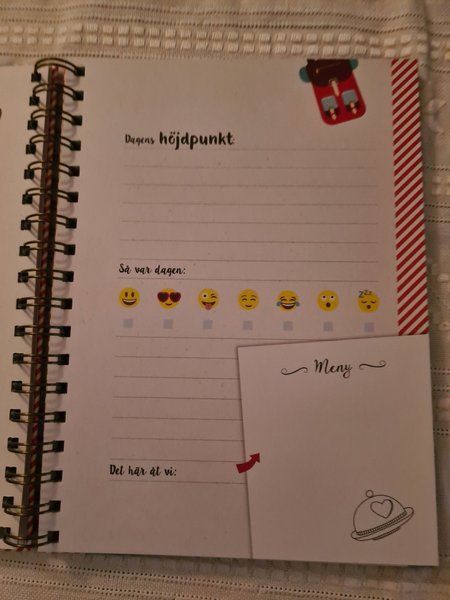 Dagens höjdpunkt:
Så var dagen:
zzz
Meny
Det här åt vi: